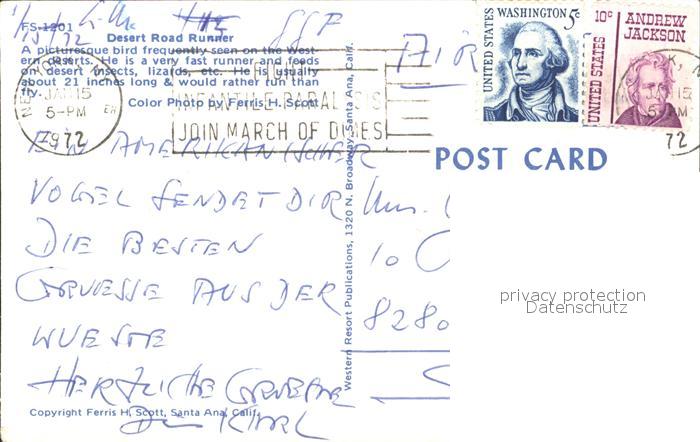 FS-1201
Desert Road Runner
A picturesque bird frequently seen on the West-
ern deserts. He is a very fast runner and feeds
on desert insects, lizards, etc. He is usually
about 21 inches long & would rather run than
fly.
Color Photo by Ferris H. Scott
JAN 15
5-PM
1972
INFANTILE PARALYSIS
JOIN MARCH OF DIMES
UNITED STATES WASHINGTON 5c
10c ANDREW
JACKSON
UNITED STATES
15
PM
72
POST CARD
EIN AMERIKANISCHER
VOGEL SENDET DIR
DIE BESTEN
GRUESSE AUS DER
WUESTE
HERZLICHE GRUESSE
Dein KARL
10
8280
Western Resort Publications, 1320 N. Broadway, Santa Ana, Calif.
Copyright Ferris H. Scott, Santa Ana, Calif.
privacy protection
Datenschutz